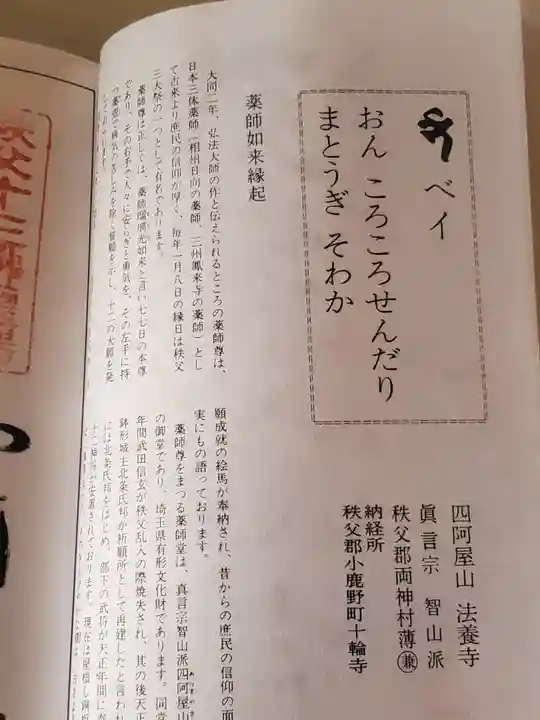 四阿屋山 法養寺
眞言宗 智山派
秩父郡両神村薄㊎
納経所
秩父郡小鹿野町十輪寺
ベイ
おん ころころせんだり
まとうぎ そわか
薬師如来縁起
大同二年、弘法大師の作と伝えられるところの薬師尊は、
日本三体薬師(相州日向の薬師、三州鳳来寺の薬師)とし
て古来より庶民の信仰が厚く、毎年一月八日の縁日は秩父
三大祭の一つとして有名であります。
薬師尊は正しくは、薬師瑠璃光如来と言い七七日の本尊
であり、その右手で人々に安らぎと勇気を、その左手に持
つ薬壺で病気の苦しみを除く誓願を示し、十二の大願を発
願成就の絵馬が奉納され、昔からの庶民の信仰の面
実にもの語っております。
薬師尊をまつる薬師堂は、真言宗智山派四阿屋山
の御堂であり、埼玉県有形文化財であります。同堂
年間武田信玄が秩父乱入の際焼失され、其の後天正
鉢形城主北条氏邦が祈願所として再建したと言われ
には北条氏邦をはじめ、部下の武将が天正年間に奉
十二神将が安置されております。現在は屋根し銅板